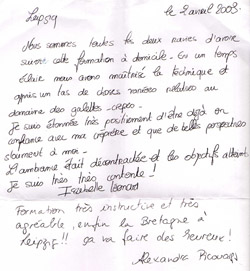 Leipzig le 2 avril 2008.
Nous sommes toutes les deux ravies d'avoir
suivi cette formation à domicile. En un temps
éclair nous avons maîtrisé la technique et
appris un tas de choses relatives au
domaine des galettes - crêpes.
Je suis étonnée très positivement d'être déjà en
confiance avec ma crêpière et que de belles crêpes
à moi.
L'ambiance était décontractée et les objectifs atteints
Je suis très très contente !
Isabelle
Formation très instructive et très
agréable, enfin la Bretagne à
Leipzig !! ça va faire des heureux !
Alexandra